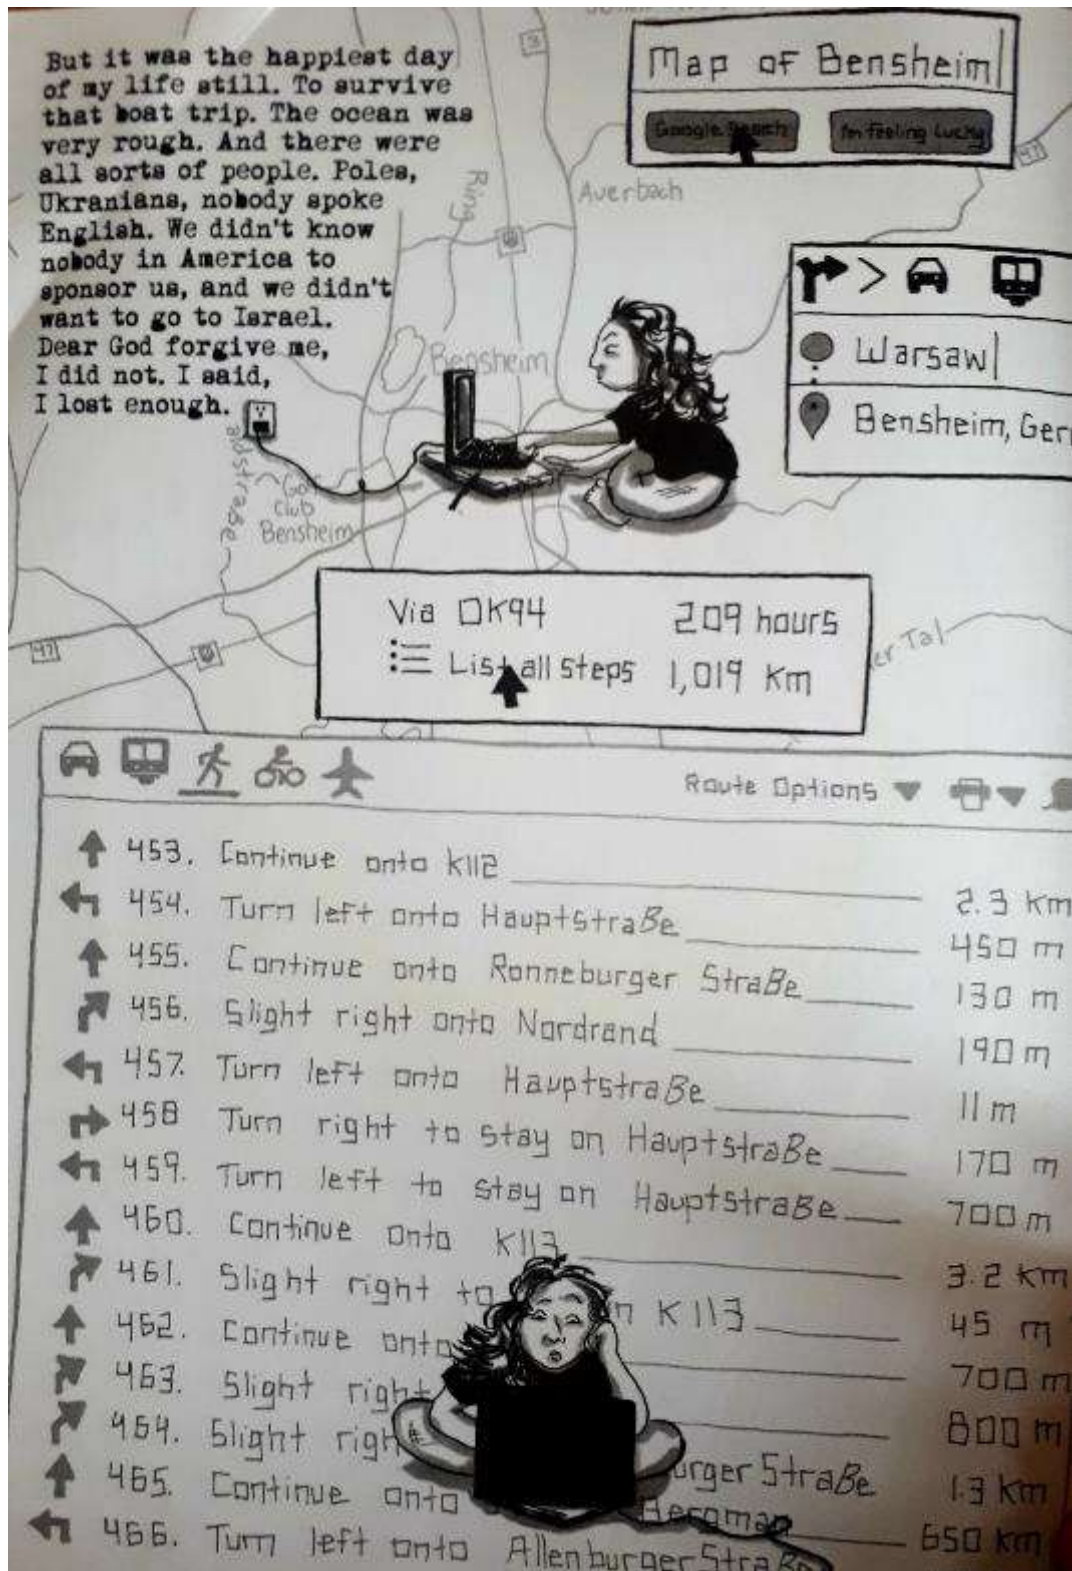 But it was the happiest day
of my life still. To survive
that boat trip. The ocean was
very rough. And there were
all sorts of people. Poles,
Ukranians, nobody spoke
English. We didn't know
nobody in America to
sponsor us, and we didn't
want to go to Israel.
Dear God forgive me,
I did not. I said,
I lost enough.
3
Map of Bensheim
Google Search
I'm Feeling Lucky
47
Ring
Auerbach
Bensheim
Warsaw
Bensheim, Ger
Club
Bensheim
Via DK94 209 hours
List all steps 1,019 km
47
er Tal
Route Options
453. Continue onto K112 2.3 km
454. Turn left onto Hauptstraße 450 m
455. Continue onto Ronneburger Straße 130 m
456. Slight right onto Nordrand 190 m
457. Turn left onto Hauptstraße 11 m
458 Turn right to stay on Hauptstraße 170 m
459. Turn left to stay on Hauptstraße 700 m
460. Continue onto K113 3.2 km
461. Slight right to K113 45 m
462. Continue onto 700 m
463. Slight right 800 m
464. Slight urger Straße 1.3 km
465. Continue onto Bergman 650 km
466. Turn left onto Allenburger Straße